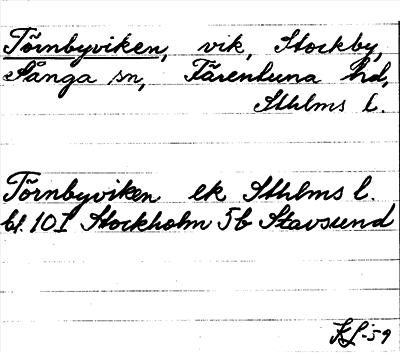 Törnbyviken, vik, Stockby,
Sånga sn, Färentuna hd,
Sthlms l.
Törnbyviken ek Sthlms l.
bl. 10 I Stockholm 5b Stavsund
KL-59